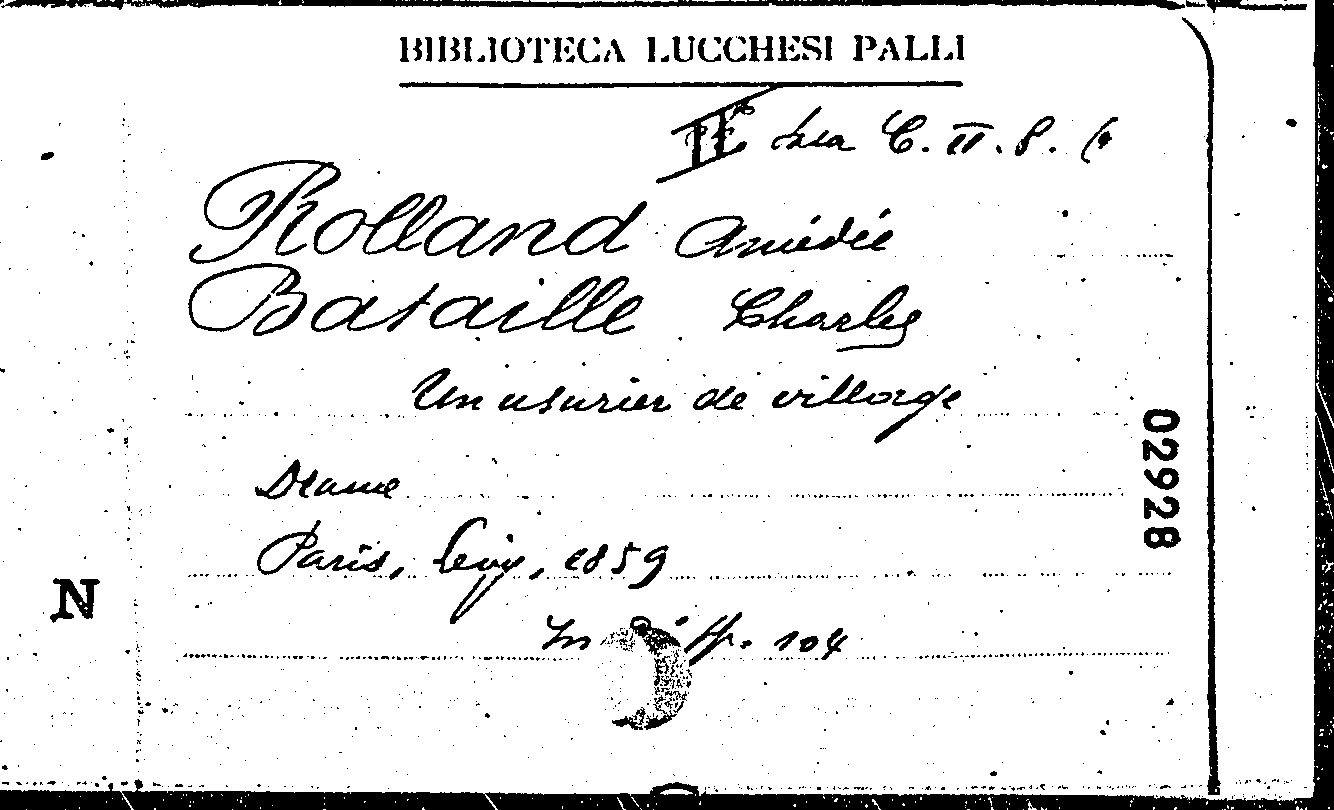 BIBLIOTECA LUCCHESI PALLI
C. II. 8. 6
Rolland Amédée
Bataille Charles
Un usurier de village
Drame
02928
Paris, Levy, 1859
N
In 8° pp. 104